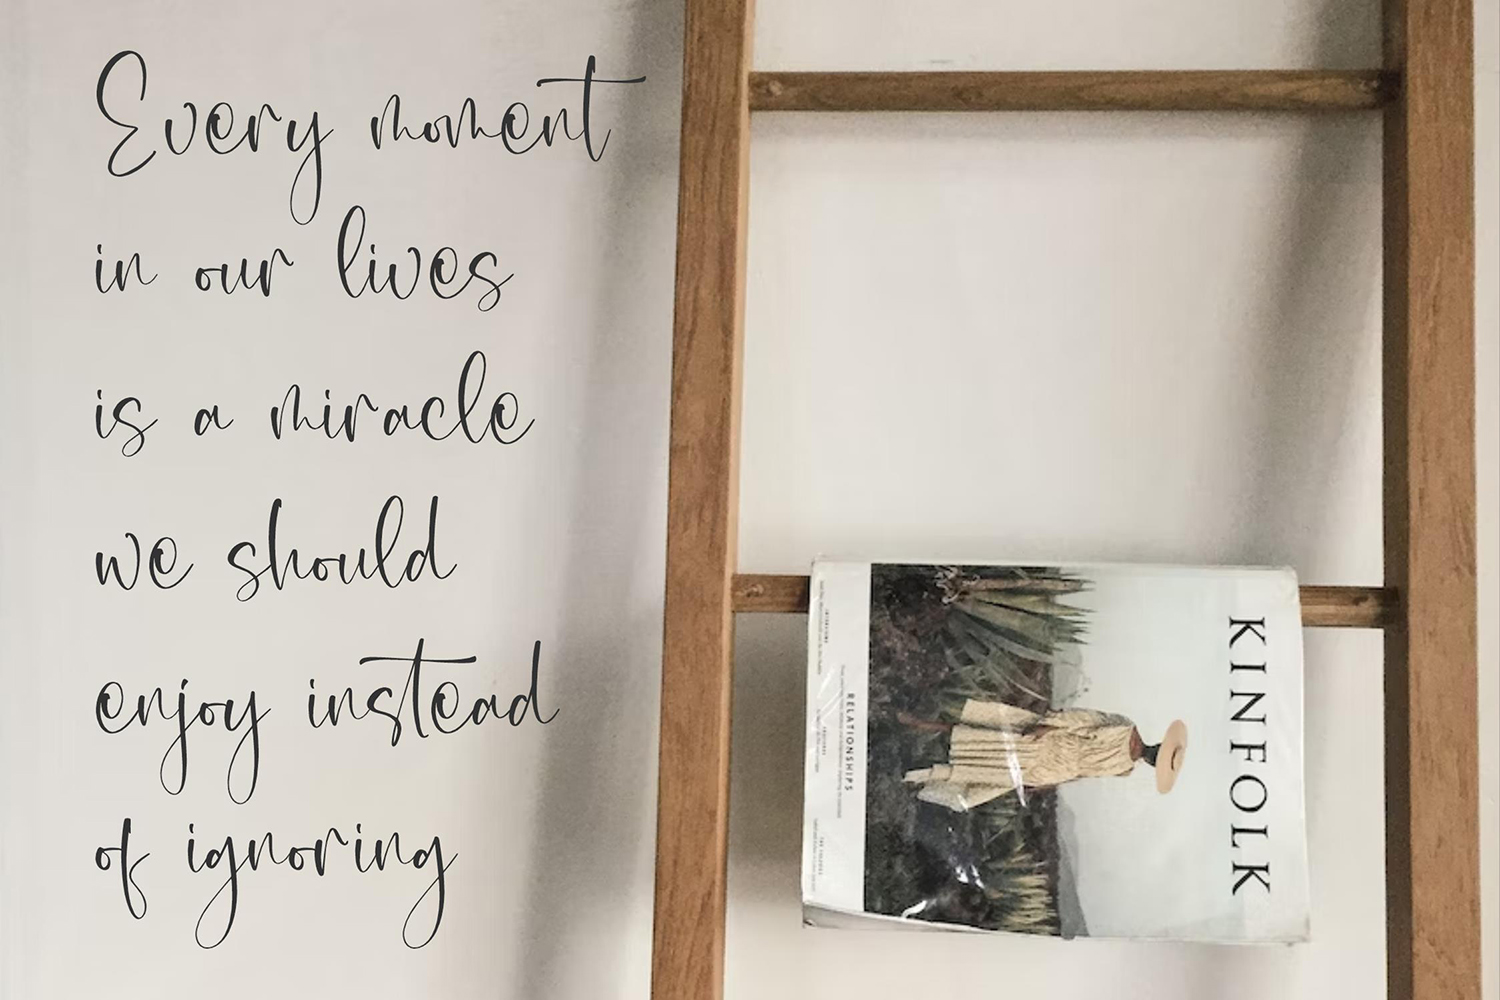 Every moment
in our lives
is a miracle
we should
enjoy instead
of ignoring
KINFOLK
RELATIONSHIPS